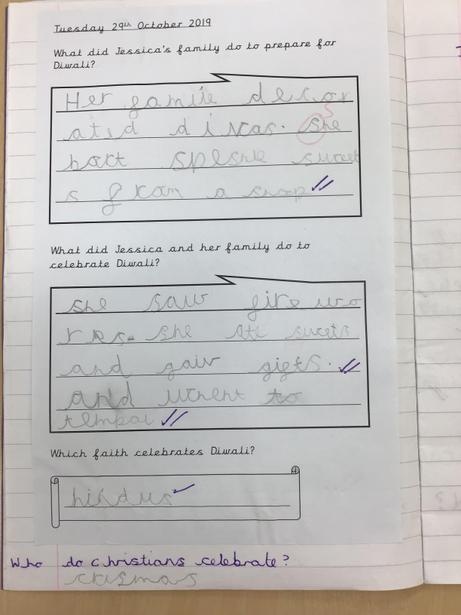 Tuesday 29th October 2019
What did Jessica's family do to prepare for
Diwali?
Her famile decor
atid divas. She
sweet
s from a shop
What did Jessica and her family do to
celebrate Diwali?
she saw fire wo
rks. she ate sweets
and gaiv gifts.
and went to
tempal
Which faith celebrates Diwali?
hindus
Who do christians celebrate?
crismas